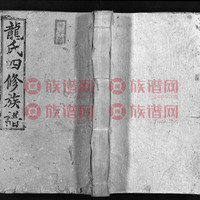 龍氏四修族譜
族谱网 族谱网 族谱网
族谱网 族谱网 族谱网